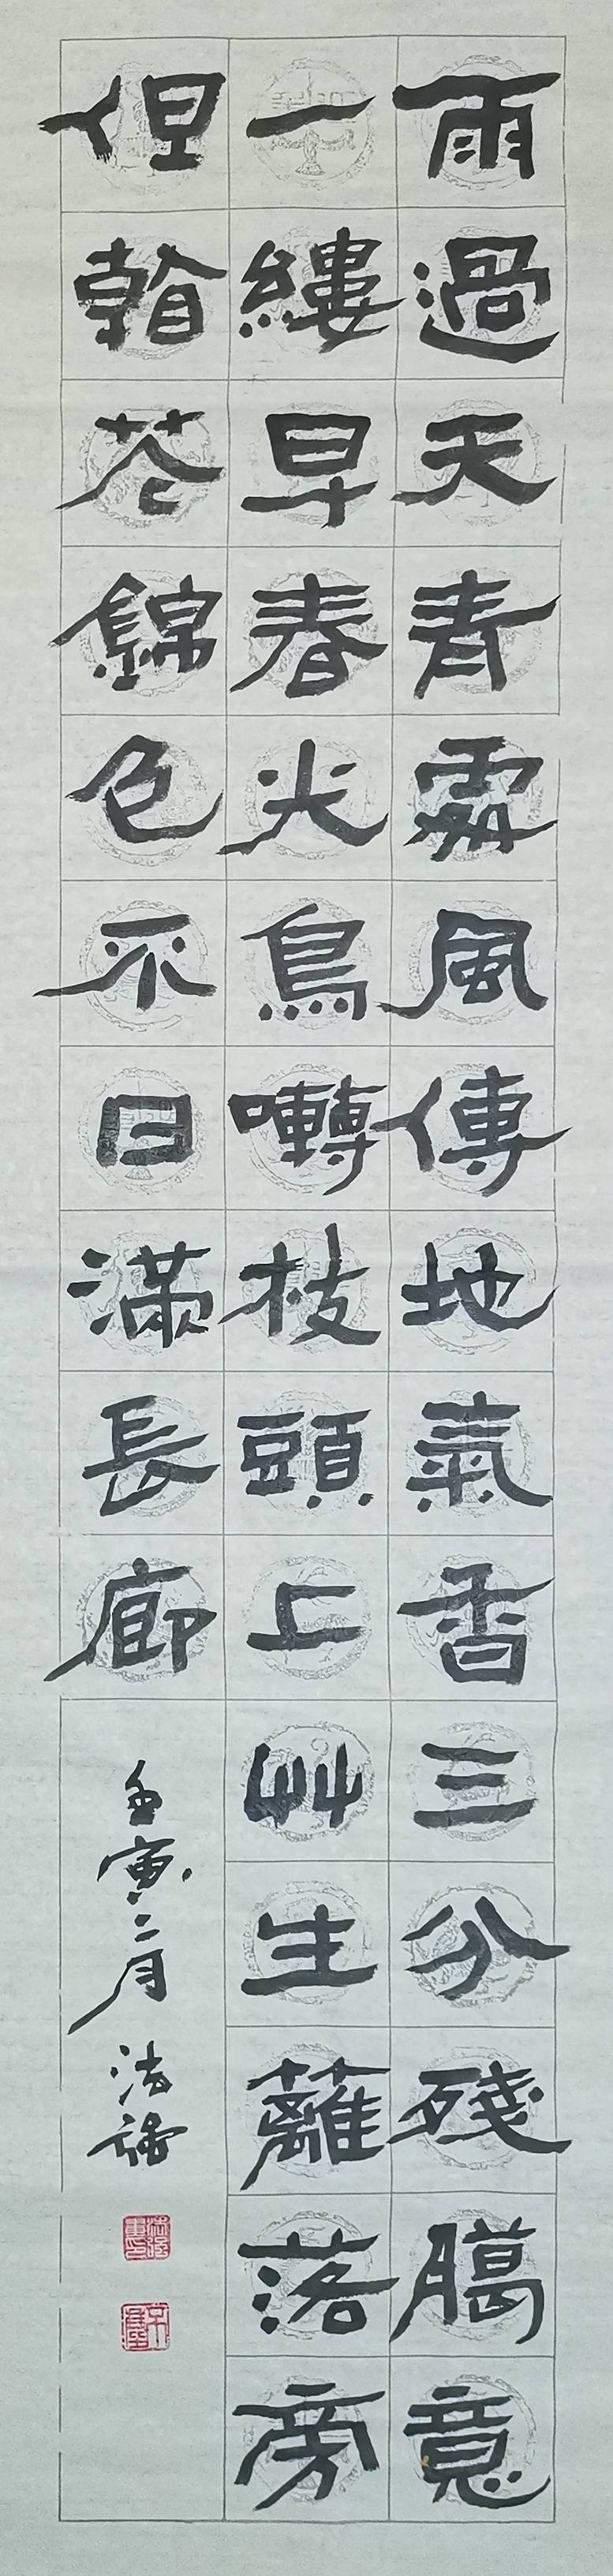 雨過天青處風傳地氣香三分殘臈意
一縷早春光鳥囀枝頭上艸生蘺落旁
但看花錦色不日滿長廊
壬寅二月法強